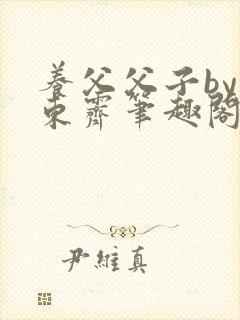 養父父子by
東霽筆趣閣
尹維真